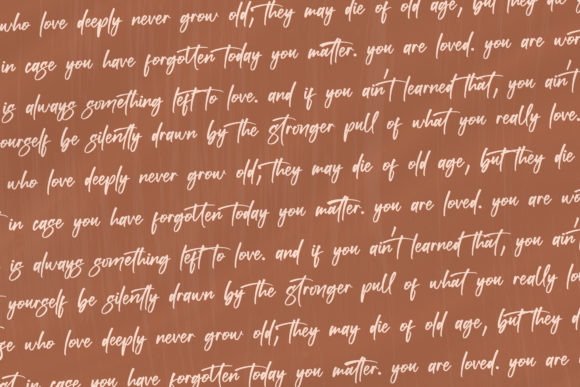 who love deeply never grow old; they may die of old age, but they die
in case you have forgotten today you matter. you are loved. you are
is always something left to love. and if you ain't learned that, you ain't
yourself be silently drawn by the stronger pull of what you really love.
who love deeply never grow old; they may die of old age, but they die
in case you have forgotten today you matter. you are loved. you are
is always something left to love. and if you ain't learned that, you ain't
yourself be silently drawn by the stronger pull of what you really
who love deeply never grow old; they may die of old age, but they
in case you have forgotten today you matter. you are loved. you are